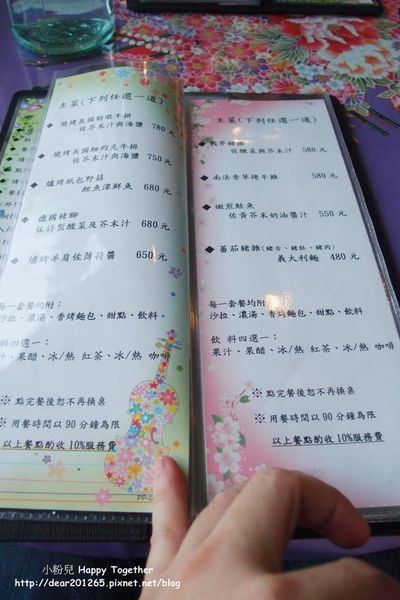 主菜(下列任選一道)
燒烤美國肋眼牛排
佐芥末汁與海鹽 780 元
燒烤美國紐約克牛排
佐芥末汁與海鹽 750 元
爐烤紙包野菇
鯛魚淳鮮魚 680 元
德國豬腳
佐特製酸菜及芥末汁 680 元
爐烤羊肩佐薄荷醬 650 元
每一套餐均附:
沙拉、濃湯、香烤麵包、甜點、飲料。
料四選一:
汁、果醋、冰/熱 紅茶、冰/熱 咖啡
※ 點完餐後恕不再換桌
※ 用餐時間以 90 分鐘為限
以上餐點酌收 10%服務費
PP-0
主菜(下列任選一道)
豬排
佐酸菜與芥末汁 580 元
南法香草烤半雞 580 元
嫩煎鮭魚
佐黃芥末奶油醬汁 550 元
蕃茄豬雜(豬舌、豬肚、豬肉)
義大利麵 480 元
每一套餐均附:
沙拉、濃湯、香烤麵包、甜點、飲料。
飲 料四選一:
果汁、果醋、冰/熱 紅茶、冰/熱 咖啡
※ 點完餐後恕不再換桌
※ 用餐時間以 90 分鐘為限
以上餐點酌收 10%服務費
小粉兒 Happy Together
http://dear201265.pixnet.net/blog